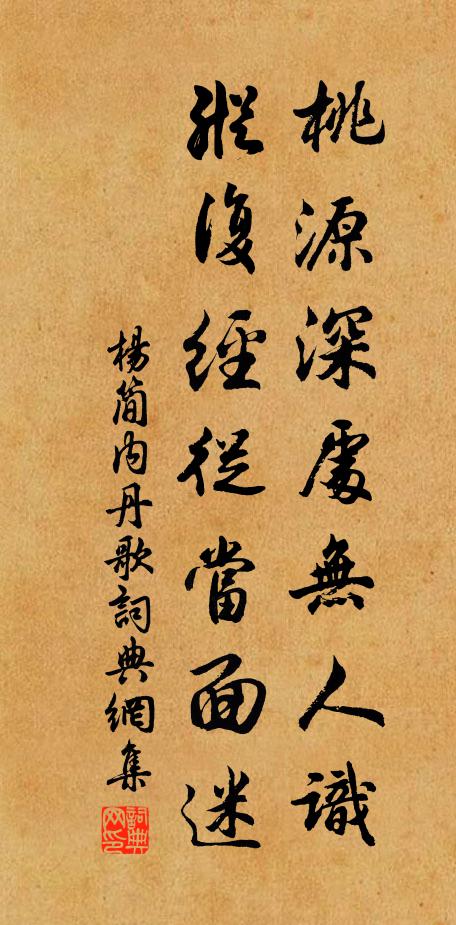 桃源深處無人識
縱復經從當面迷
楊簡內丹歌詞典網集
詞典网印